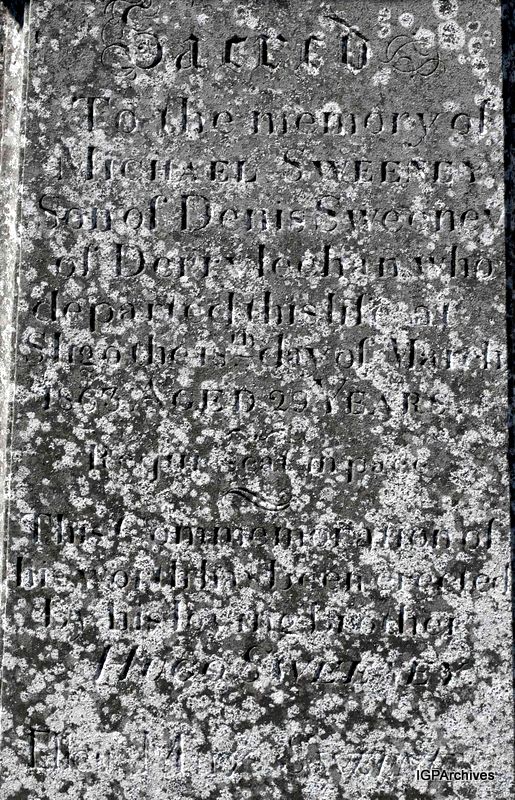 Sacred
To the memory of
MICHAEL SWEENEY
Son of Denis Sweeney
of Derrylechan who
departed this life at
Sligo the 18th day of March
1863 AGED 29 YEARS
Requiescat in pace
This Commemoration of
his worth has been erected
by his loving brother
HUGO SWEENEY
Sweeney
IGPArchives